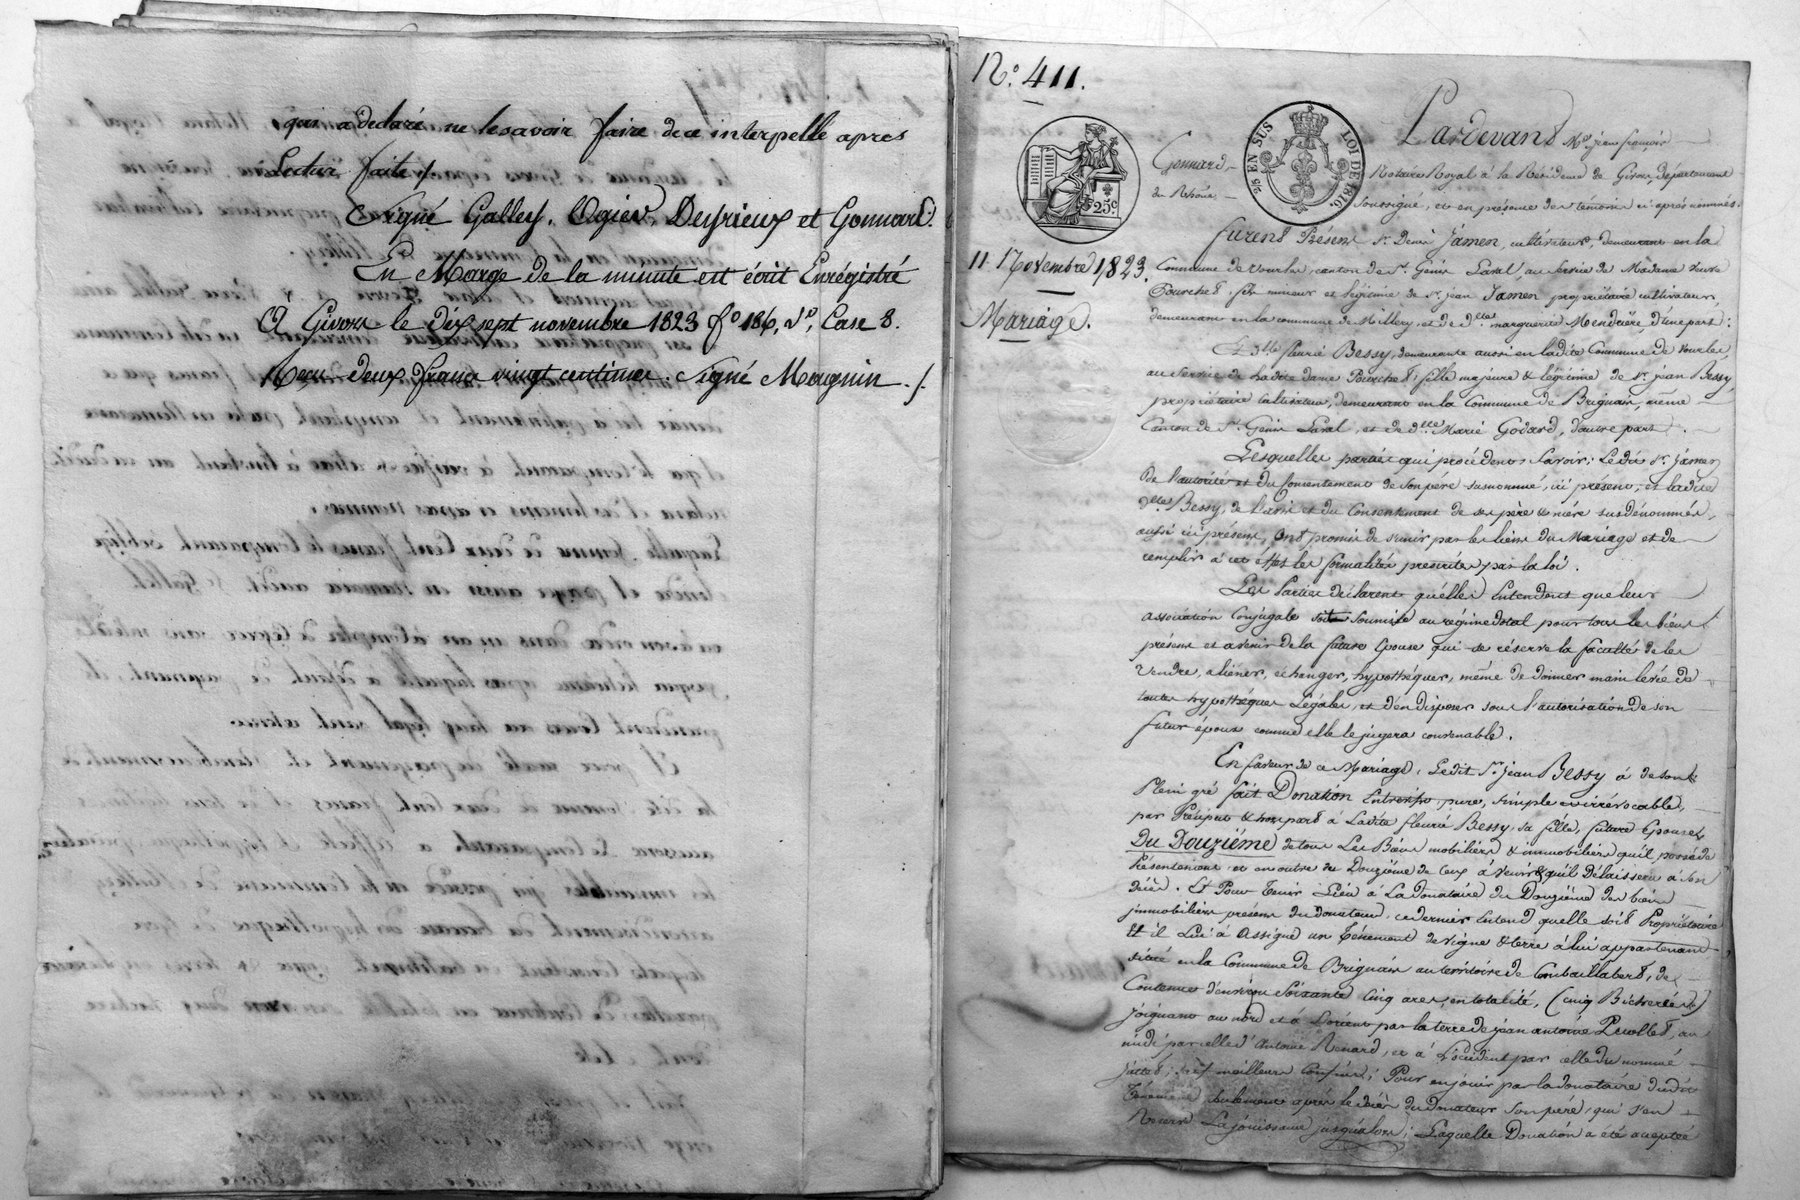 qui a déclaré ne le savoir faire de ce interpellé après
Lecture faite /.
Signé Galley, Ogier, Deyrieux et Gonnard.
En Marge de la minute est écrit Enrégistré
à Givors le dix sept novembre 1823 fo 186, Vo, Case 8.
Recu deux francs vingt centimes. Signé Mougnin ./.
No. 411.
11 Novembre 1823.
Mariage.
25 EN SUS LOI DE 1816.
25c
Pardevant Me jean françois
Gonnard Notaire Royal à la Résidence de Givors, département
du Rhône, soussigné, et en présence des témoins ci après nommés.
Furent Présens Sr. Denis Jamen, cultivateur, demeurant en la
Commune de Vourles, canton de St. Genis Laval, au service de Madame veuve
fils mineur et légitime de Sr. jean Jamen propriétaire cultivateur,
demeurant en la commune de Millery, et de dlle marguerite d'une part;
Et dlle fleurie Bessy, demeurante aussi en ladite Commune de Vourles,
au service de ladite dame fille majeure & légitime de Sr. jean Bessy,
propriétaire cultivateur, demeurant en la Commune de Brignais, même
Canton de St. Genis Laval, et de dlle Marie Godard, d'autre part.
Lesquelles parties qui procèdent, Savoir; Ledit Sr. Jamen
de l'autorité et du consentement de son père susnommé, ici présent, et ladite
dlle Bessy, de l'avis et du Consentement de ses père & mère susdénommés,
aussi ici présens, Ont promis de s'unir par les liens du Mariage et de
remplir à cet effet les formalités prescrites par la loi.
Les Parties déclarent qu'elles Entendent que leur
association Conjugale soit soumise au régime dotal pour tous les biens
présens et avenir de la future Epouse qui se réserve la faculté de les
Vendre, aliéner, échanger, hypothéquer, même de donner main levée de
toutes hypothéques Légales, et d'en disposer sous l'autorisation de son
futur époux comme elle le jugera convenable.
En faveur de ce Mariage, Ledit Sr. jean Bessy à de son
Plein gré fait Donation Entrevifs, pure, simple & irrévocable,
par Préciput & hors part à Ladite fleurie Bessy, sa fille, future Epouse,
Du Douzième de tous Les Biens mobiliers & immobiliers qu'il possède
Présentement, et en outre du Douzième de Ceux à venir & qu'il délaissera à son
décès. Et Pour Tenir Lieu à La donataire du Douzième des biens
immobiliers présens du donateur, ce dernier Entend quelle soit Propriétaire
Et il Lui à Assigné un Ténement de vigne & terre à lui appartenant
située en la Commune de Brignais au territoire de de
Contenue d'environ Soixante Cinq ares, en totalité, (cinq Bicherées)
joignant au nord et à l'orient par la terre de jean antoine au
midi par celle d'Antoine Renard, et à L'occident par celle du nommé
sauf meilleurs Confins; Pour en jouir par la donataire dudit
Ténement seulement après le décès du donateur son père, qui s'en
Réserve La jouissance jusqu'alors; Laquelle Donation a été acceptée